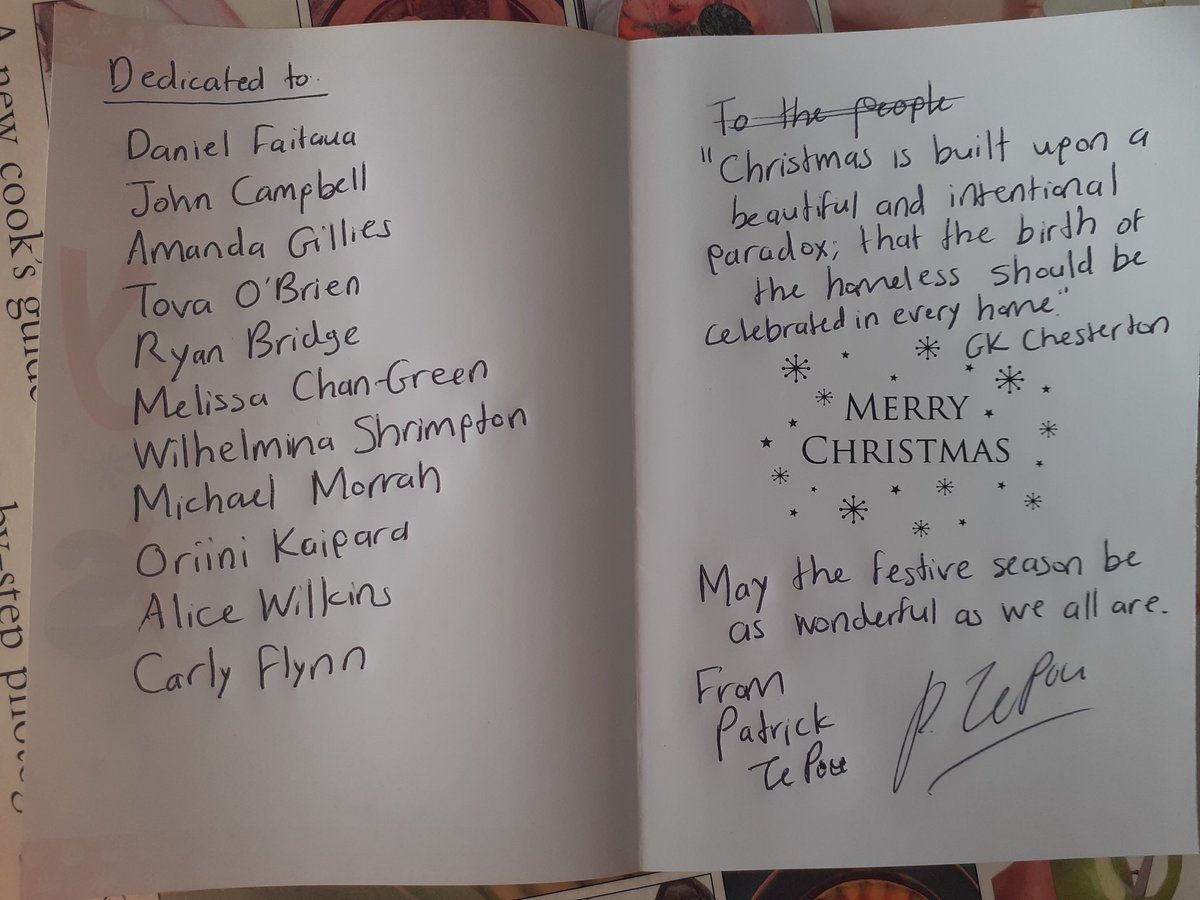 Dedicated to.
Daniel Faitaua
John Campbell
Amanda Gillies
Tova O'Brien
Ryan Bridge
Melissa Chan-Green
Wilhelmina Shrimpton
Michael Morrah
Oriini Kaipard
Alice Wilkins
Carly Flynn
To the people
"Christmas is built upon a
beautiful and intentional
paradox; that the birth of
the homeless should be
celebrated in every home."
GK Chesterton
MERRY
CHRISTMAS
May the festive season be
as wonderful as we all are.
From
Patrick
Te Pou
P. Te Pou
A new cook's guide
by-step